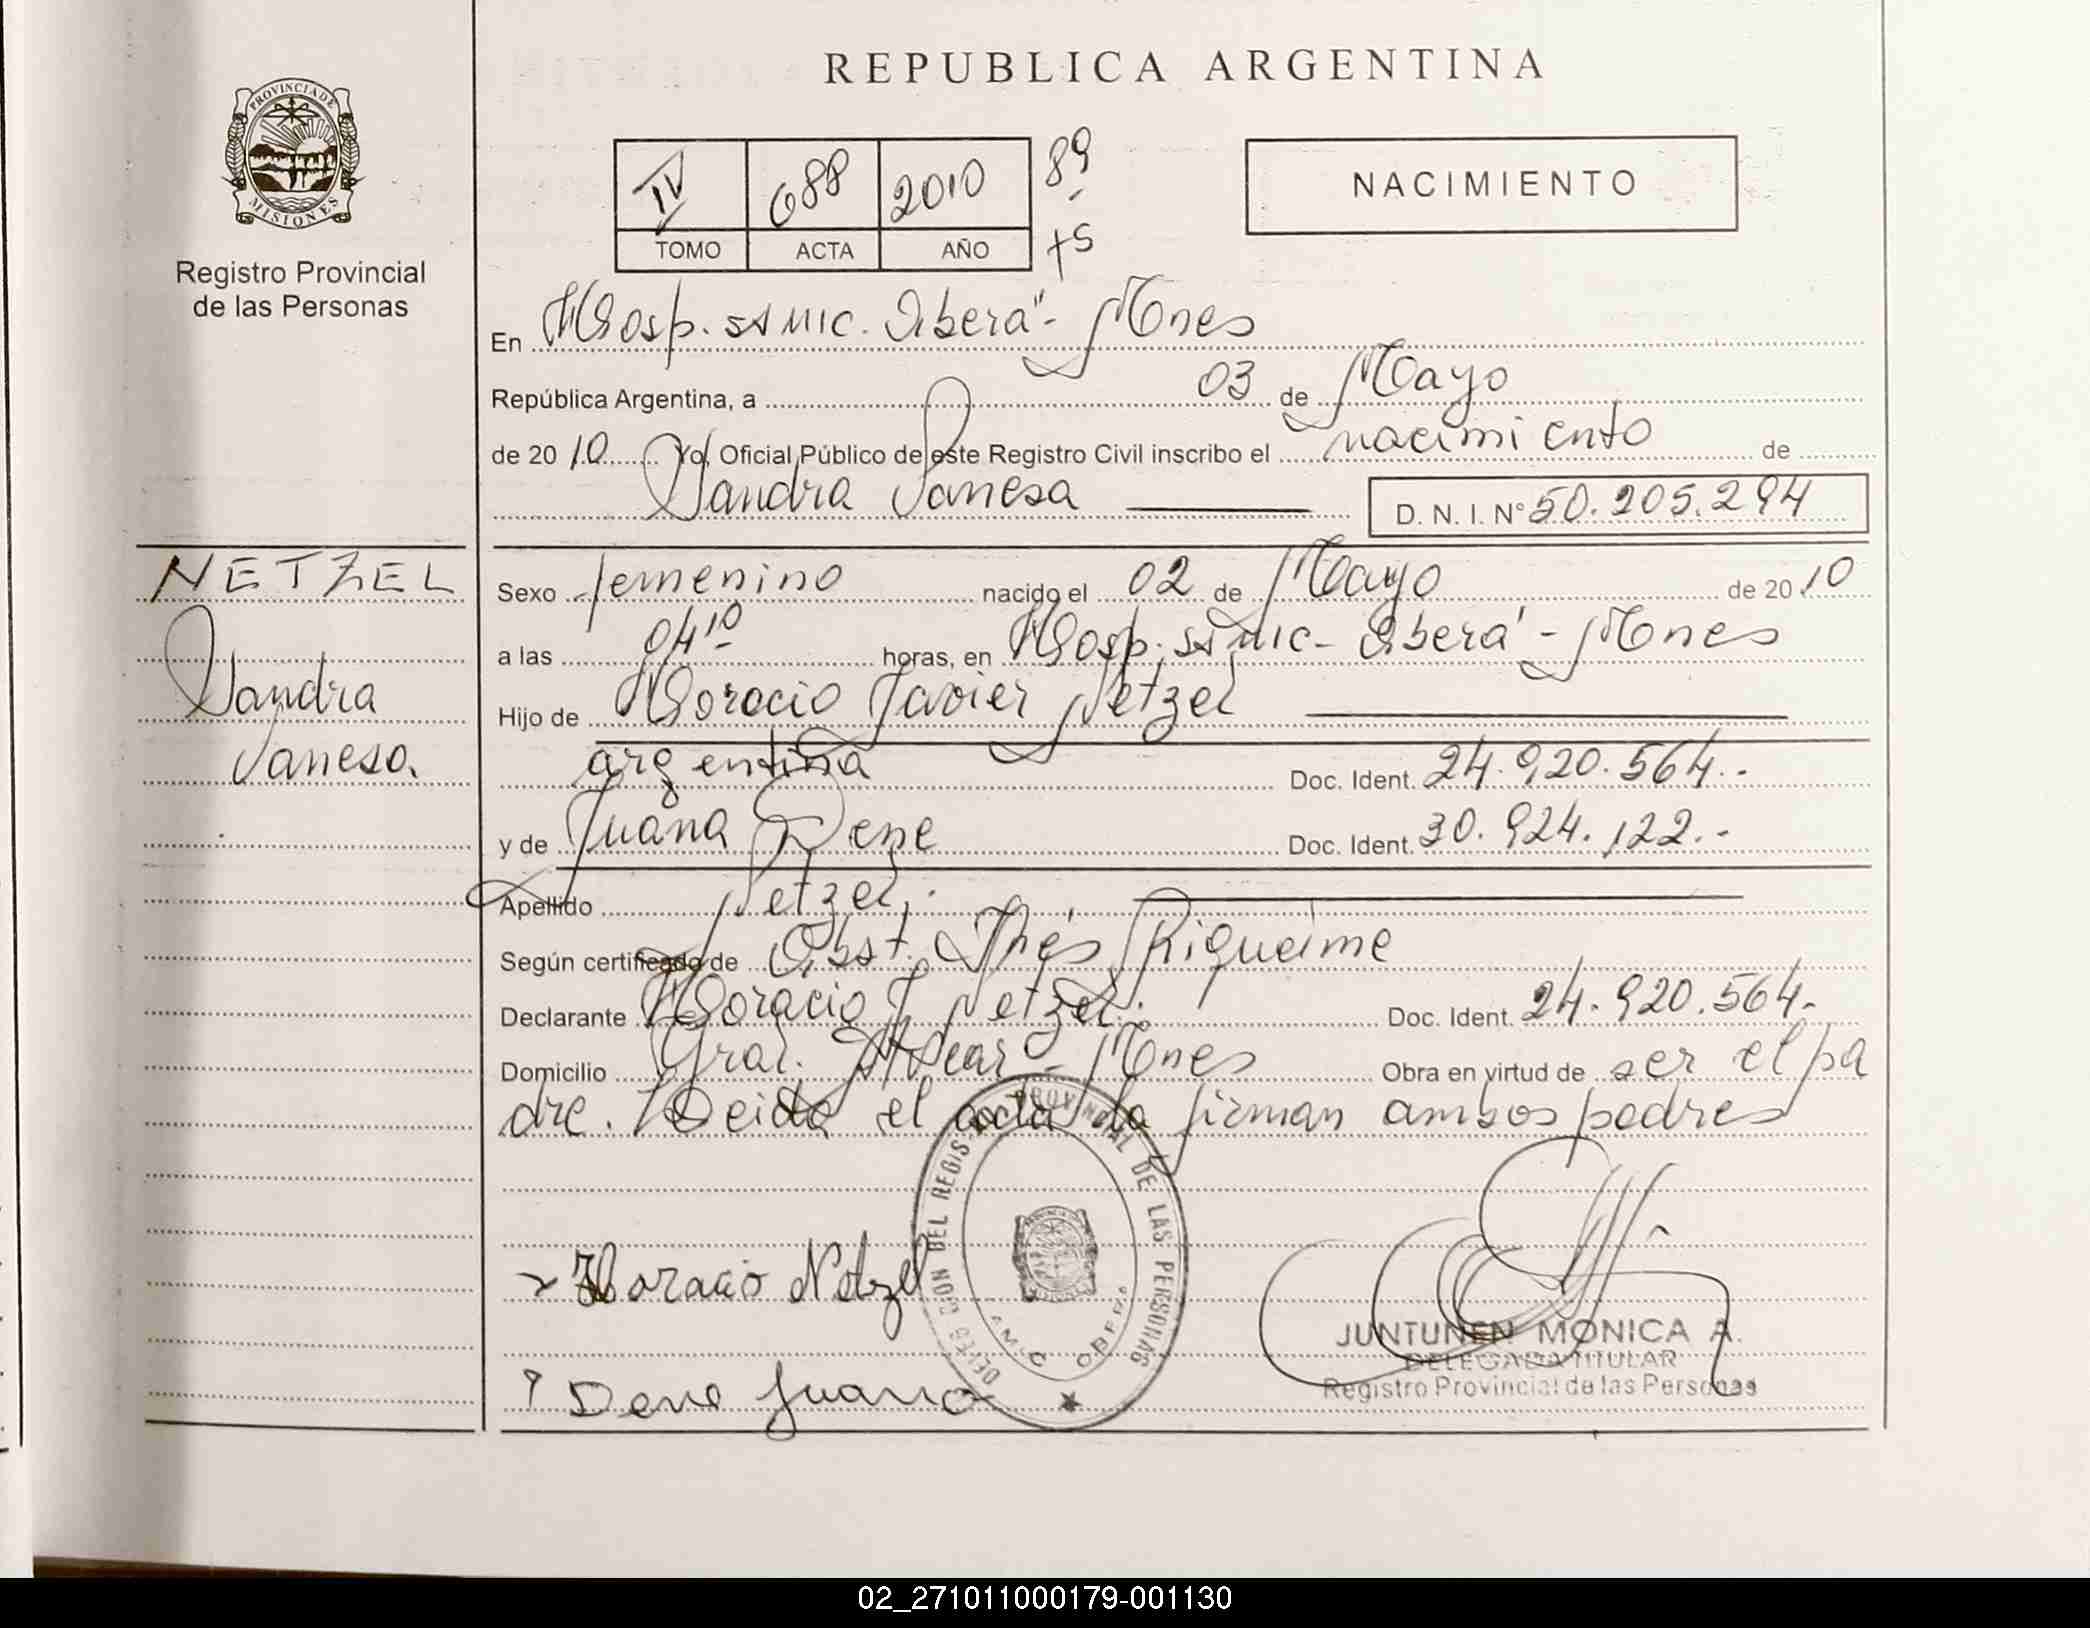 REPUBLICA ARGENTINA
PROVINCIA DE MISIONES
Registro Provincial
de las Personas
IV 688 2010 89
TOMO ACTA AÑO
NACIMIENTO
En Hosp. SAMIC. Oberá - Mnes
República Argentina, a 03 de Mayo
de 2010 Yo, Oficial Público de este Registro Civil inscribo el nacimiento de
Sandra Vanesa D. N. I. N° 50.205.294
NETZEL
Sandra
Vanesa.
Sexo femenino nacido el 02 de Mayo de 2010
a las 04 10 horas, en Hosp. SAMIC - Oberá - Mnes
Hijo de Horacio Javier Netzel
argentina Doc. Ident. 24.920.564.-
y de Juana Dene Doc. Ident. 30.924.122.-
Apellido Netzel.
Según certificado de Obst. Inés Riqueime
Declarante Horacio J. Netzel. Doc. Ident. 24.920.564-
Domicilio Gral. Alvear - Mnes Obra en virtud de ser el pa
dre. Leida el acta la firman ambos padres
Horacio Netzel
Dene Juana
PROVINCIAL DE LAS PERSONAS
JUNTUNEN MONICA A.
DELEGADA TITULAR
Registro Provincial de las Personas
02_271011000179-001130